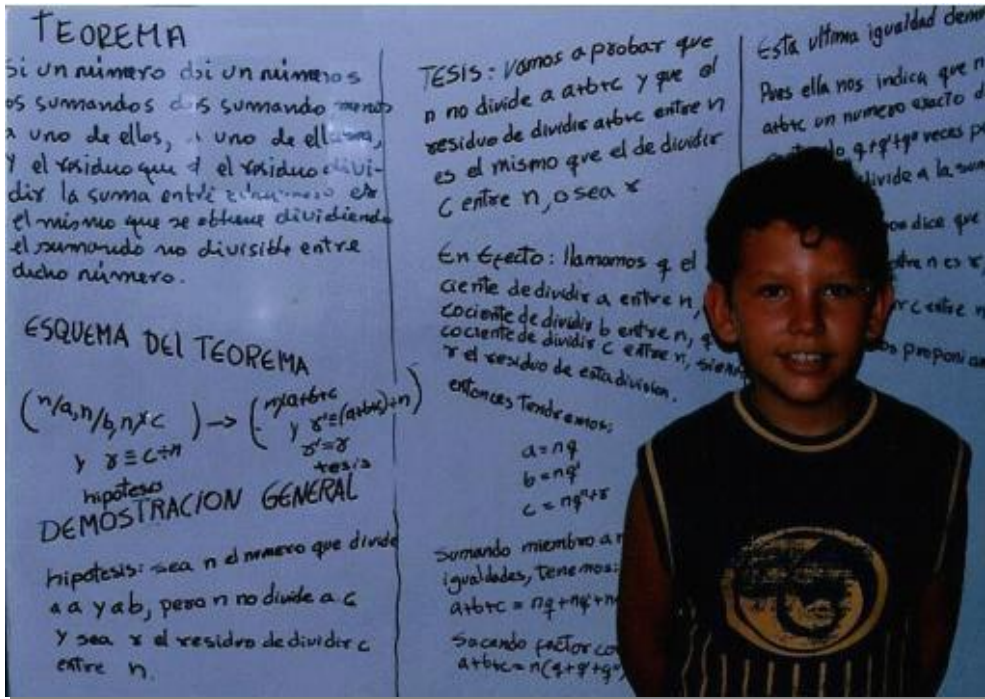 TEOREMA
si un número dsi un números
os sumandos dos sumando menos
a uno de ellos, a uno de ellos,
y el residuo que d el residuo divi-
dir la suma entre es
el mismo que se obtiene dividiendo
el sumando no divisible entre
dicho número.
ESQUEMA DEL TEOREMA
(n/a, n/b, n⊀c ) → ( n⊀a+b+c )
y r ≡ c÷n y r'≡(a+b+c)÷n
r'=r
hipótesis tesis
DEMOSTRACION GENERAL
hipotesis: sea n el número que divide
a a y a b, pero n no divide a c
y sea r el residuo de dividir c
entre n.
TESIS: Vamos a probar que
n no divide a a+b+c y que el
residuo de dividir a+b+c entre n
es el mismo que el de dividir
c entre n, o sea r
En Efecto: llamamos q el
ciente de dividir a entre n,
cociente de dividir b entre n, q
cociente de dividir c entre n, siend
r el residuo de esta division.
entonces Tendremos:
a = nq
b = nq'
c = nq''+r
Sumando miembro a m
igualdades, tenemos:
a+b+c = nq+nq'+n
Sacando factor co
a+b+c = n(q+q'+q'')
Esta ultima igualdad demu
Pues ella nos indica que n
a+b+c un numero exacto d
q+q'+q'' veces pe
divide a la sum
nos dice que
entre n es r,
r c entre n
os proponiam